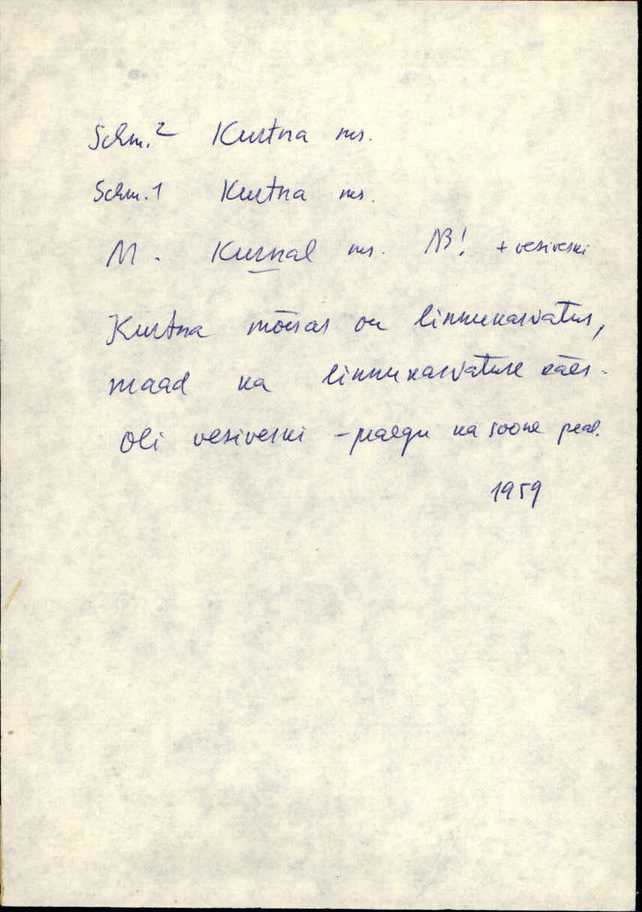 Schm.2 Kurtna ms.
Schm.1 Kurtna ms.
M. Kurnal ms. NB! + vesiveski
Kurtna mõisas on linnukasvatus,
maad ka linnukasvatuse käes.
Oli vesiveski - praegu ka soone peal.
1959